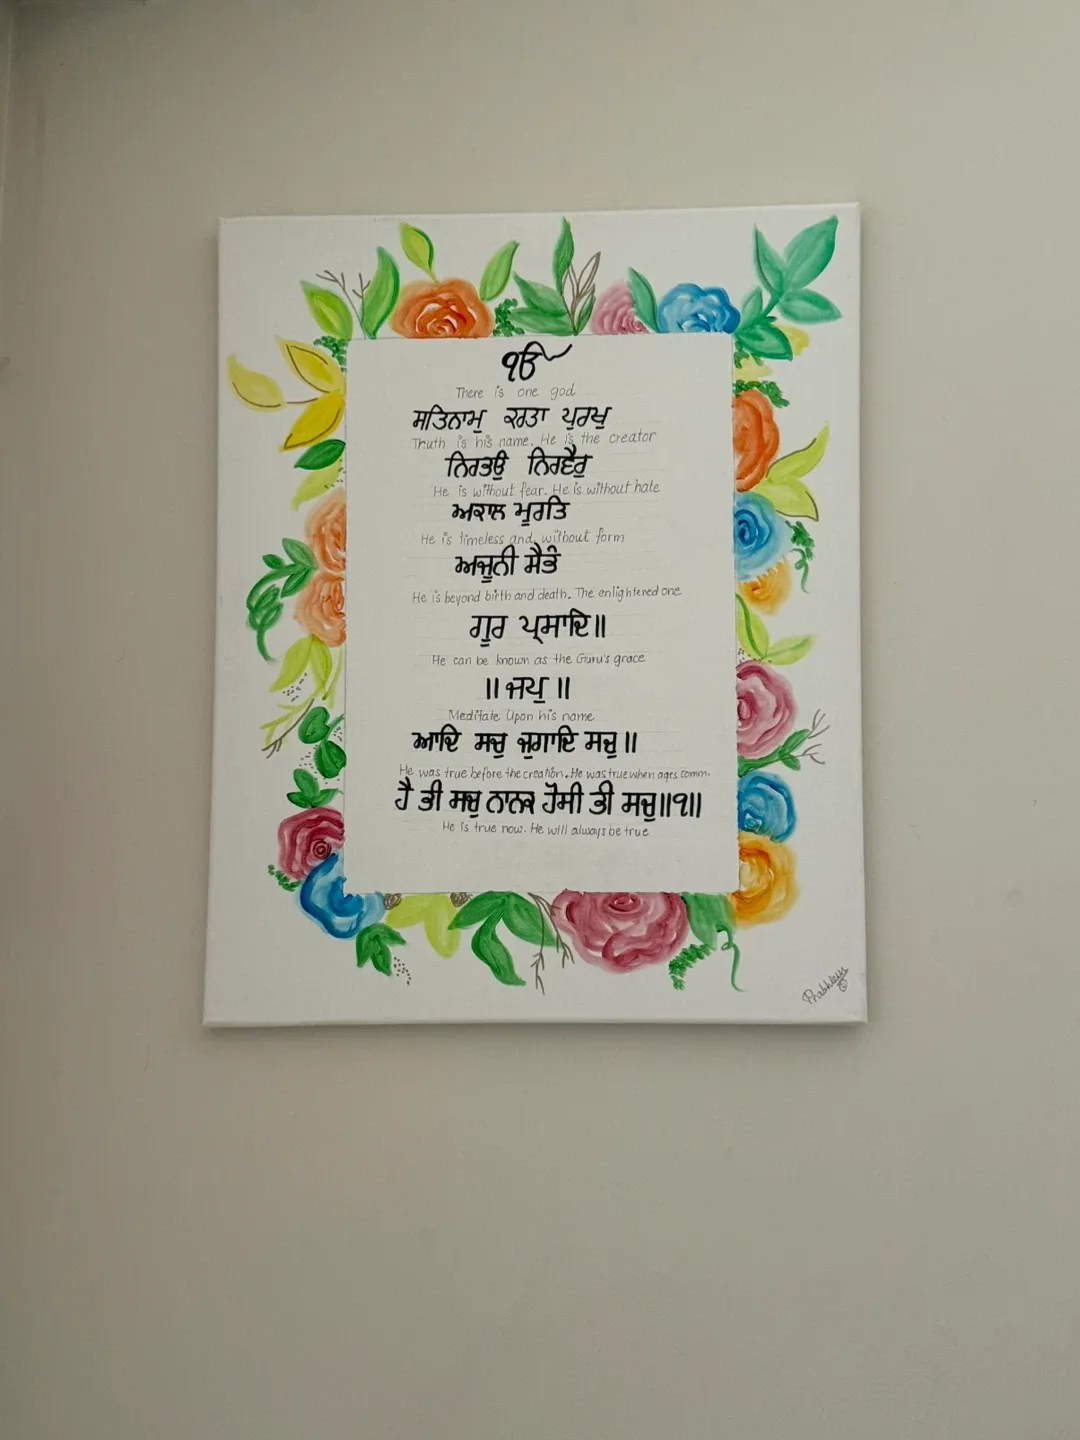 ੴ
There is one god
ਸਤਿਨਾਮੁ ਕਰਤਾ ਪੁਰਖੁ
Truth is his name. He is the creator
ਨਿਰਭਉ ਨਿਰਵੈਰੁ
He is without fear. He is without hate
ਅਕਾਲ ਮੂਰਤਿ
He is timeless and, without form
ਅਜੂਨੀ ਸੈਭੰ
He is beyond birth and death. The enlightened one
ਗੁਰ ਪ੍ਰਸਾਦਿ॥
He can be known as the Guru's grace
॥ ਜਪੁ ॥
Meditate Upon his name
ਆਦਿ ਸਚੁ ਜੁਗਾਦਿ ਸਚੁ॥
He was true before the creation. He was true when ages comm.
ਹੈ ਭੀ ਸਚੁ ਨਾਨਕ ਹੋਸੀ ਭੀ ਸਚੁ॥੧॥
He is true now. He will always be true